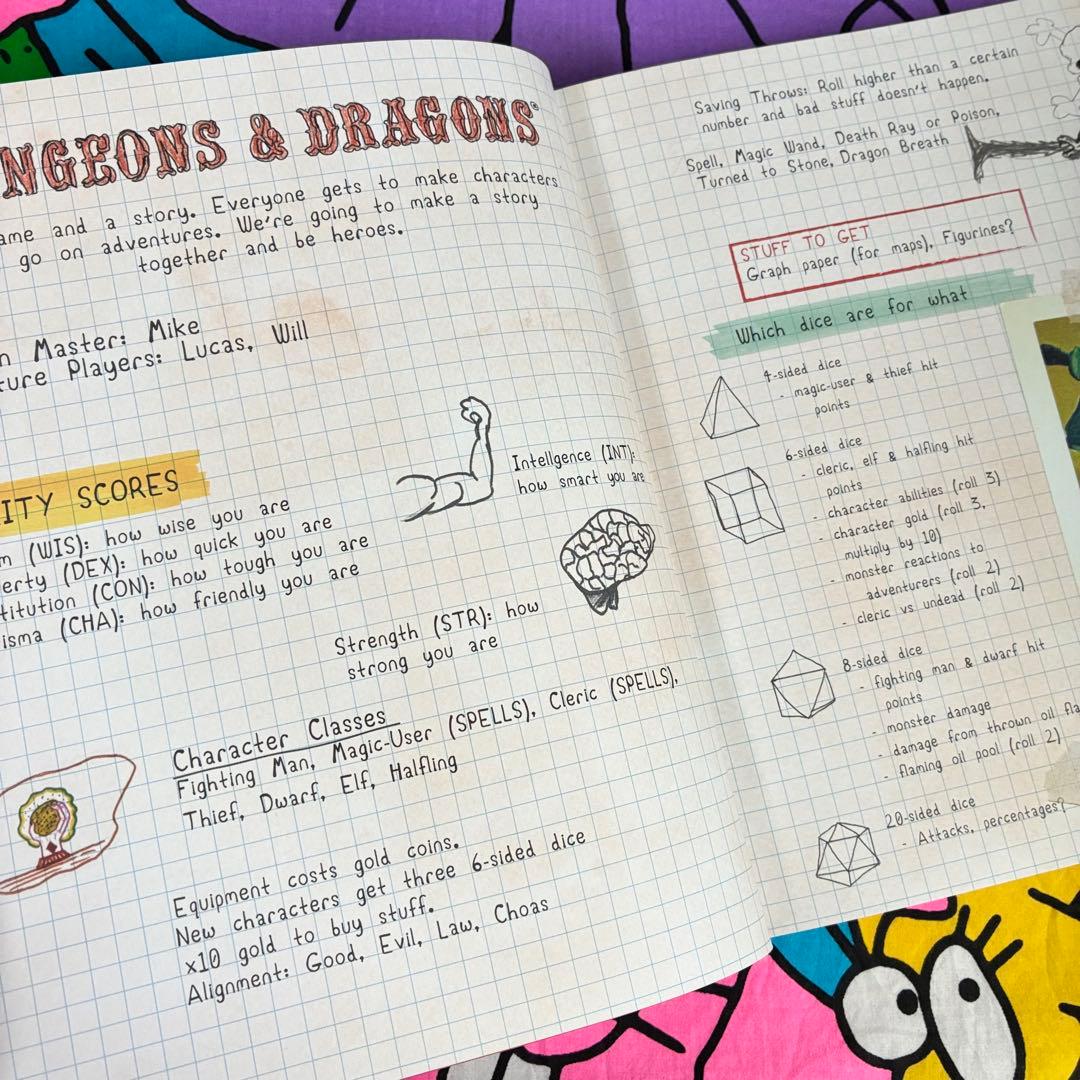 NGEONS & DRAGONS®
ame and a story. Everyone gets to make characters
go on adventures. We're going to make a story
together and be heroes.
n Master: Mike
ture Players: Lucas, Will
ITY SCORES
m (WIS): how wise you are
erty (DEX): how quick you are
titution (CON): how tough you are
isma (CHA): how friendly you are
Intellgence (INT):
how smart you are
Strength (STR): how
strong you are
Character Classes
Fighting Man, Magic-User (SPELLS), Cleric (SPELLS),
Thief, Dwarf, Elf, Halfling
Equipment costs gold coins.
New characters get three 6-sided dice
x10 gold to buy stuff.
Alignment: Good, Evil, Law, Choas
Saving Throws: Roll higher than a certain
number and bad stuff doesn't happen.
Spell, Magic Wand, Death Ray or Poison,
Turned to Stone, Dragon Breath
STUFF TO GET
Graph paper (for maps), Figurines?
Which dice are for what
4-sided dice
- magic-user & thief hit
points
6-sided dice
- cleric, elf & halfling hit
points
- character abilities (roll 3)
- character gold (roll 3,
multiply by 10)
- monster reactions to
adventurers (roll 2)
- cleric vs undead (roll 2)
8-sided dice
- fighting man & dwarf hit
points
- monster damage
- damage from thrown oil fla
- flaming oil pool (roll 2)
20-sided dice
- Attacks, percentages?